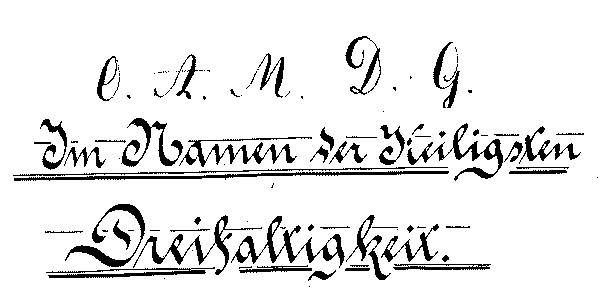 O. A. M. D. G.
Im Namen der Heiligsten
Dreifaltigkeit.